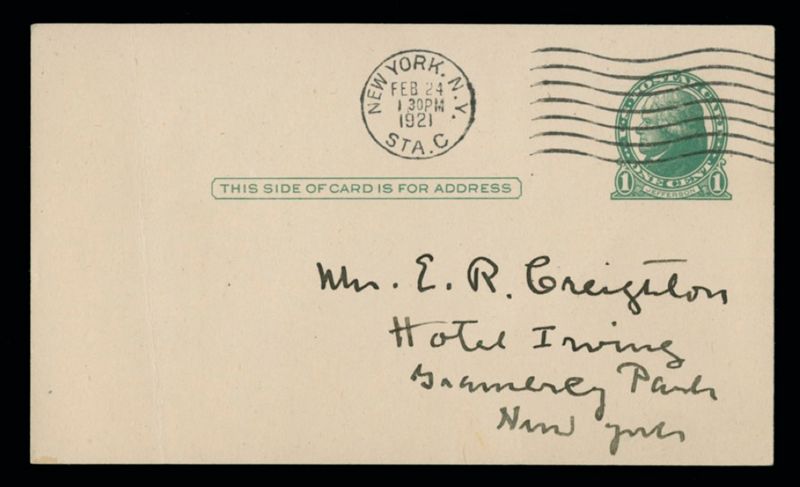 NEW YORK, N.Y.
FEB 24
1 30PM
1921
STA. C
U.S. POSTAL CARD
ONE CENT
1 JEFFERSON 1
THIS SIDE OF CARD IS FOR ADDRESS
Mr. E. R. Creighton
Hotel Irving
Gramercy Park
New York